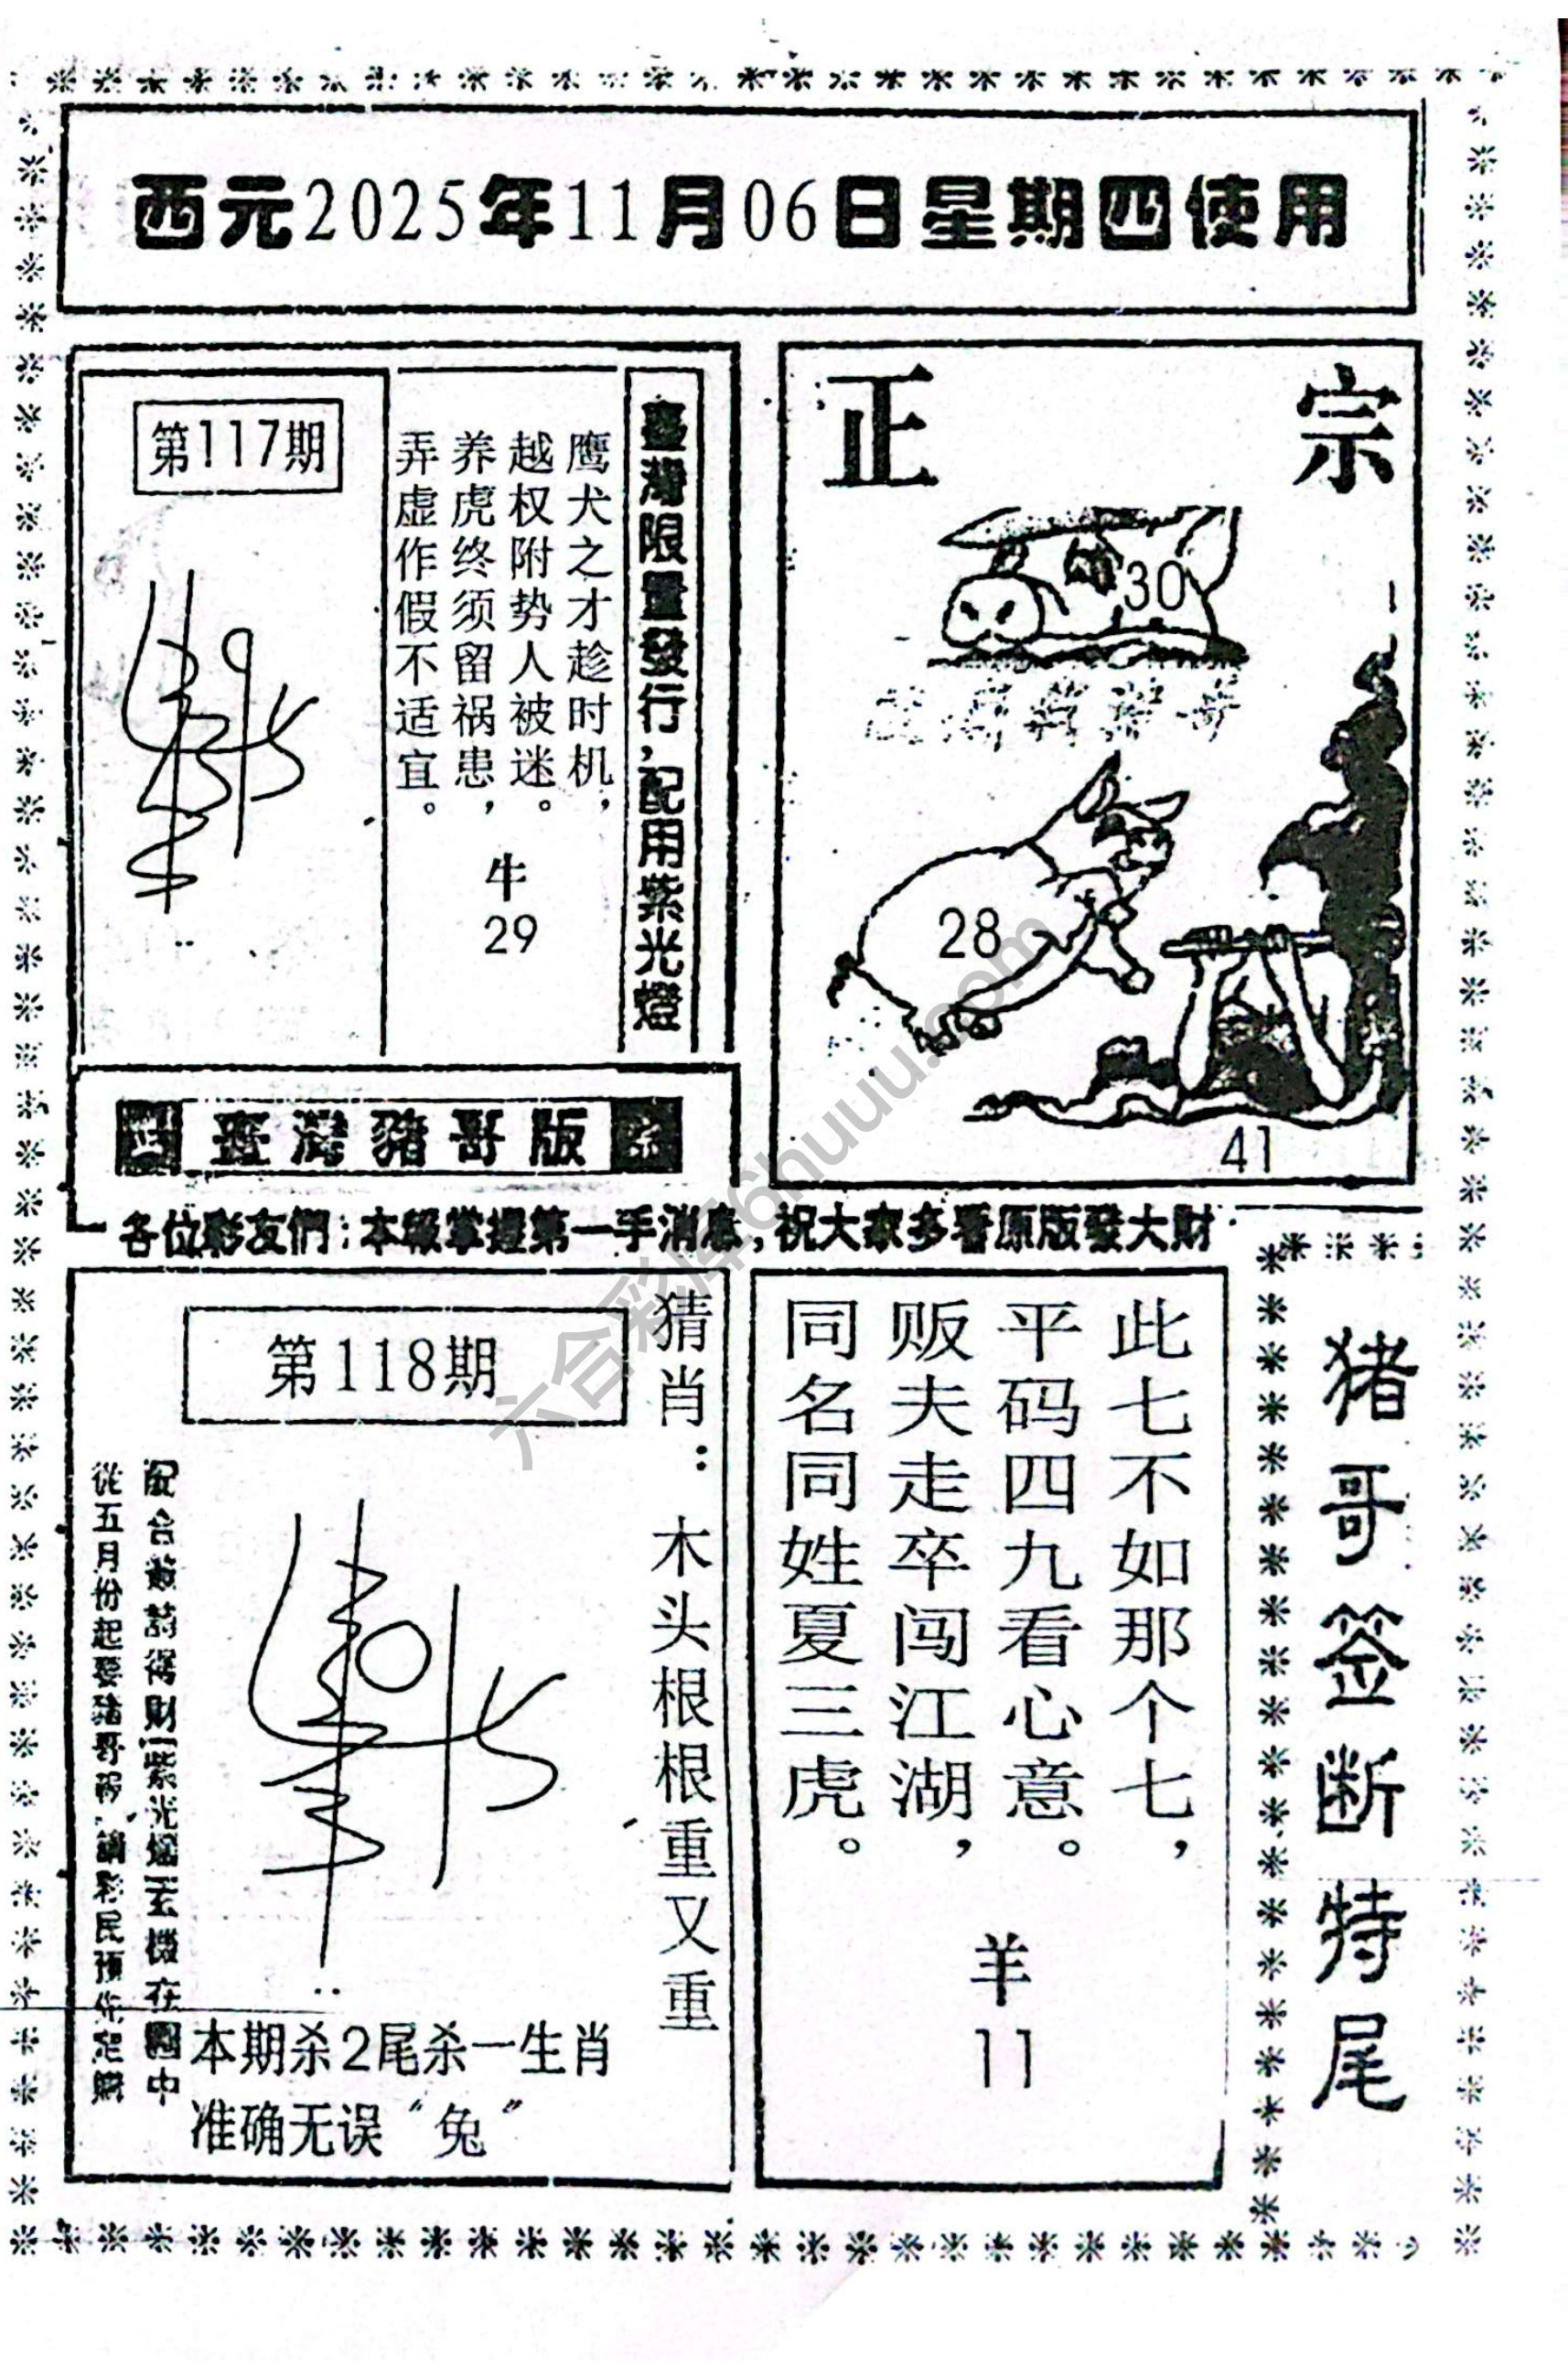 西元2025年11月06日星期四使用
第117期
鹰犬之才趁时机，
越权附势人被迷。
养虎终须留祸患，
弄虚作假不适宜。
牛
29
臺灣限量發行，配用紫光燈
正宗
30
28
41
臺灣豬哥版
各位彩友們：本報掌握第一手消息，祝大家多看原版發大財
第118期
猜肖：木头根根重又重
從五月份起要豬哥
本期杀2尾杀一生肖
准确无误“兔”
此七不如那个七，
平码四九看心意。
贩夫走卒闯江湖，
同名同姓夏三虎。
羊
11
猪哥签断特尾
六合彩库6huuu.com